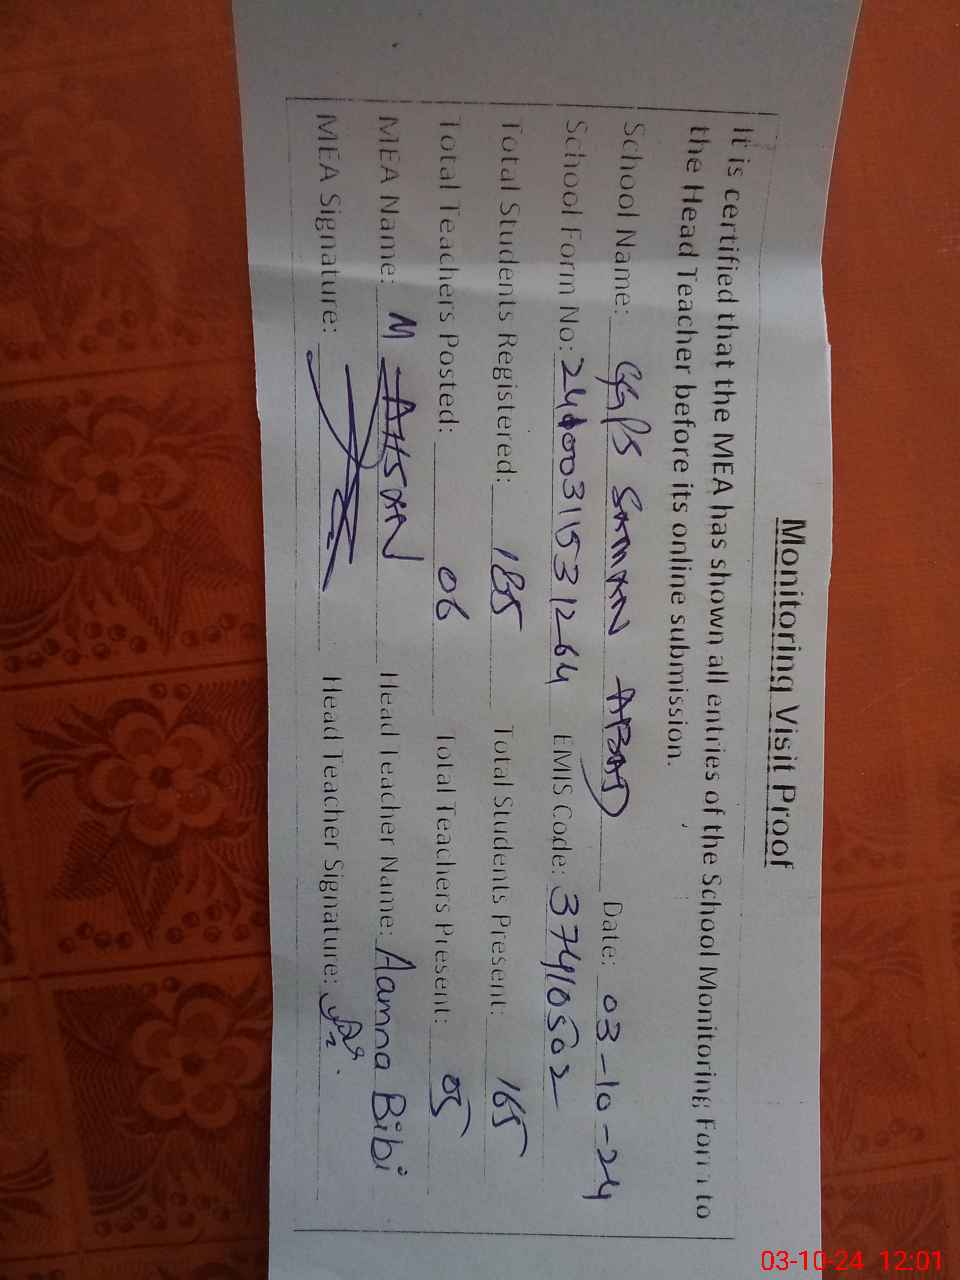 Monitoring Visit Proof
It is certified that the MEA has shown all entries of the School Monitoring Form to
the Head Teacher before its online submission.
School Name: GGPS SAMAN ABAD Date: 03-10-24
School Form No: 24100311531264 EMIS Code: 37410502
Total Students Registered: 185 Total Students Present: 165
Total Teachers Posted: 06 Total Teachers Present: 05
MEA Name: M AHSAN Head Teacher Name: Aamna Bibi
MEA Signature: Head Teacher Signature:
03-10-24 12:01